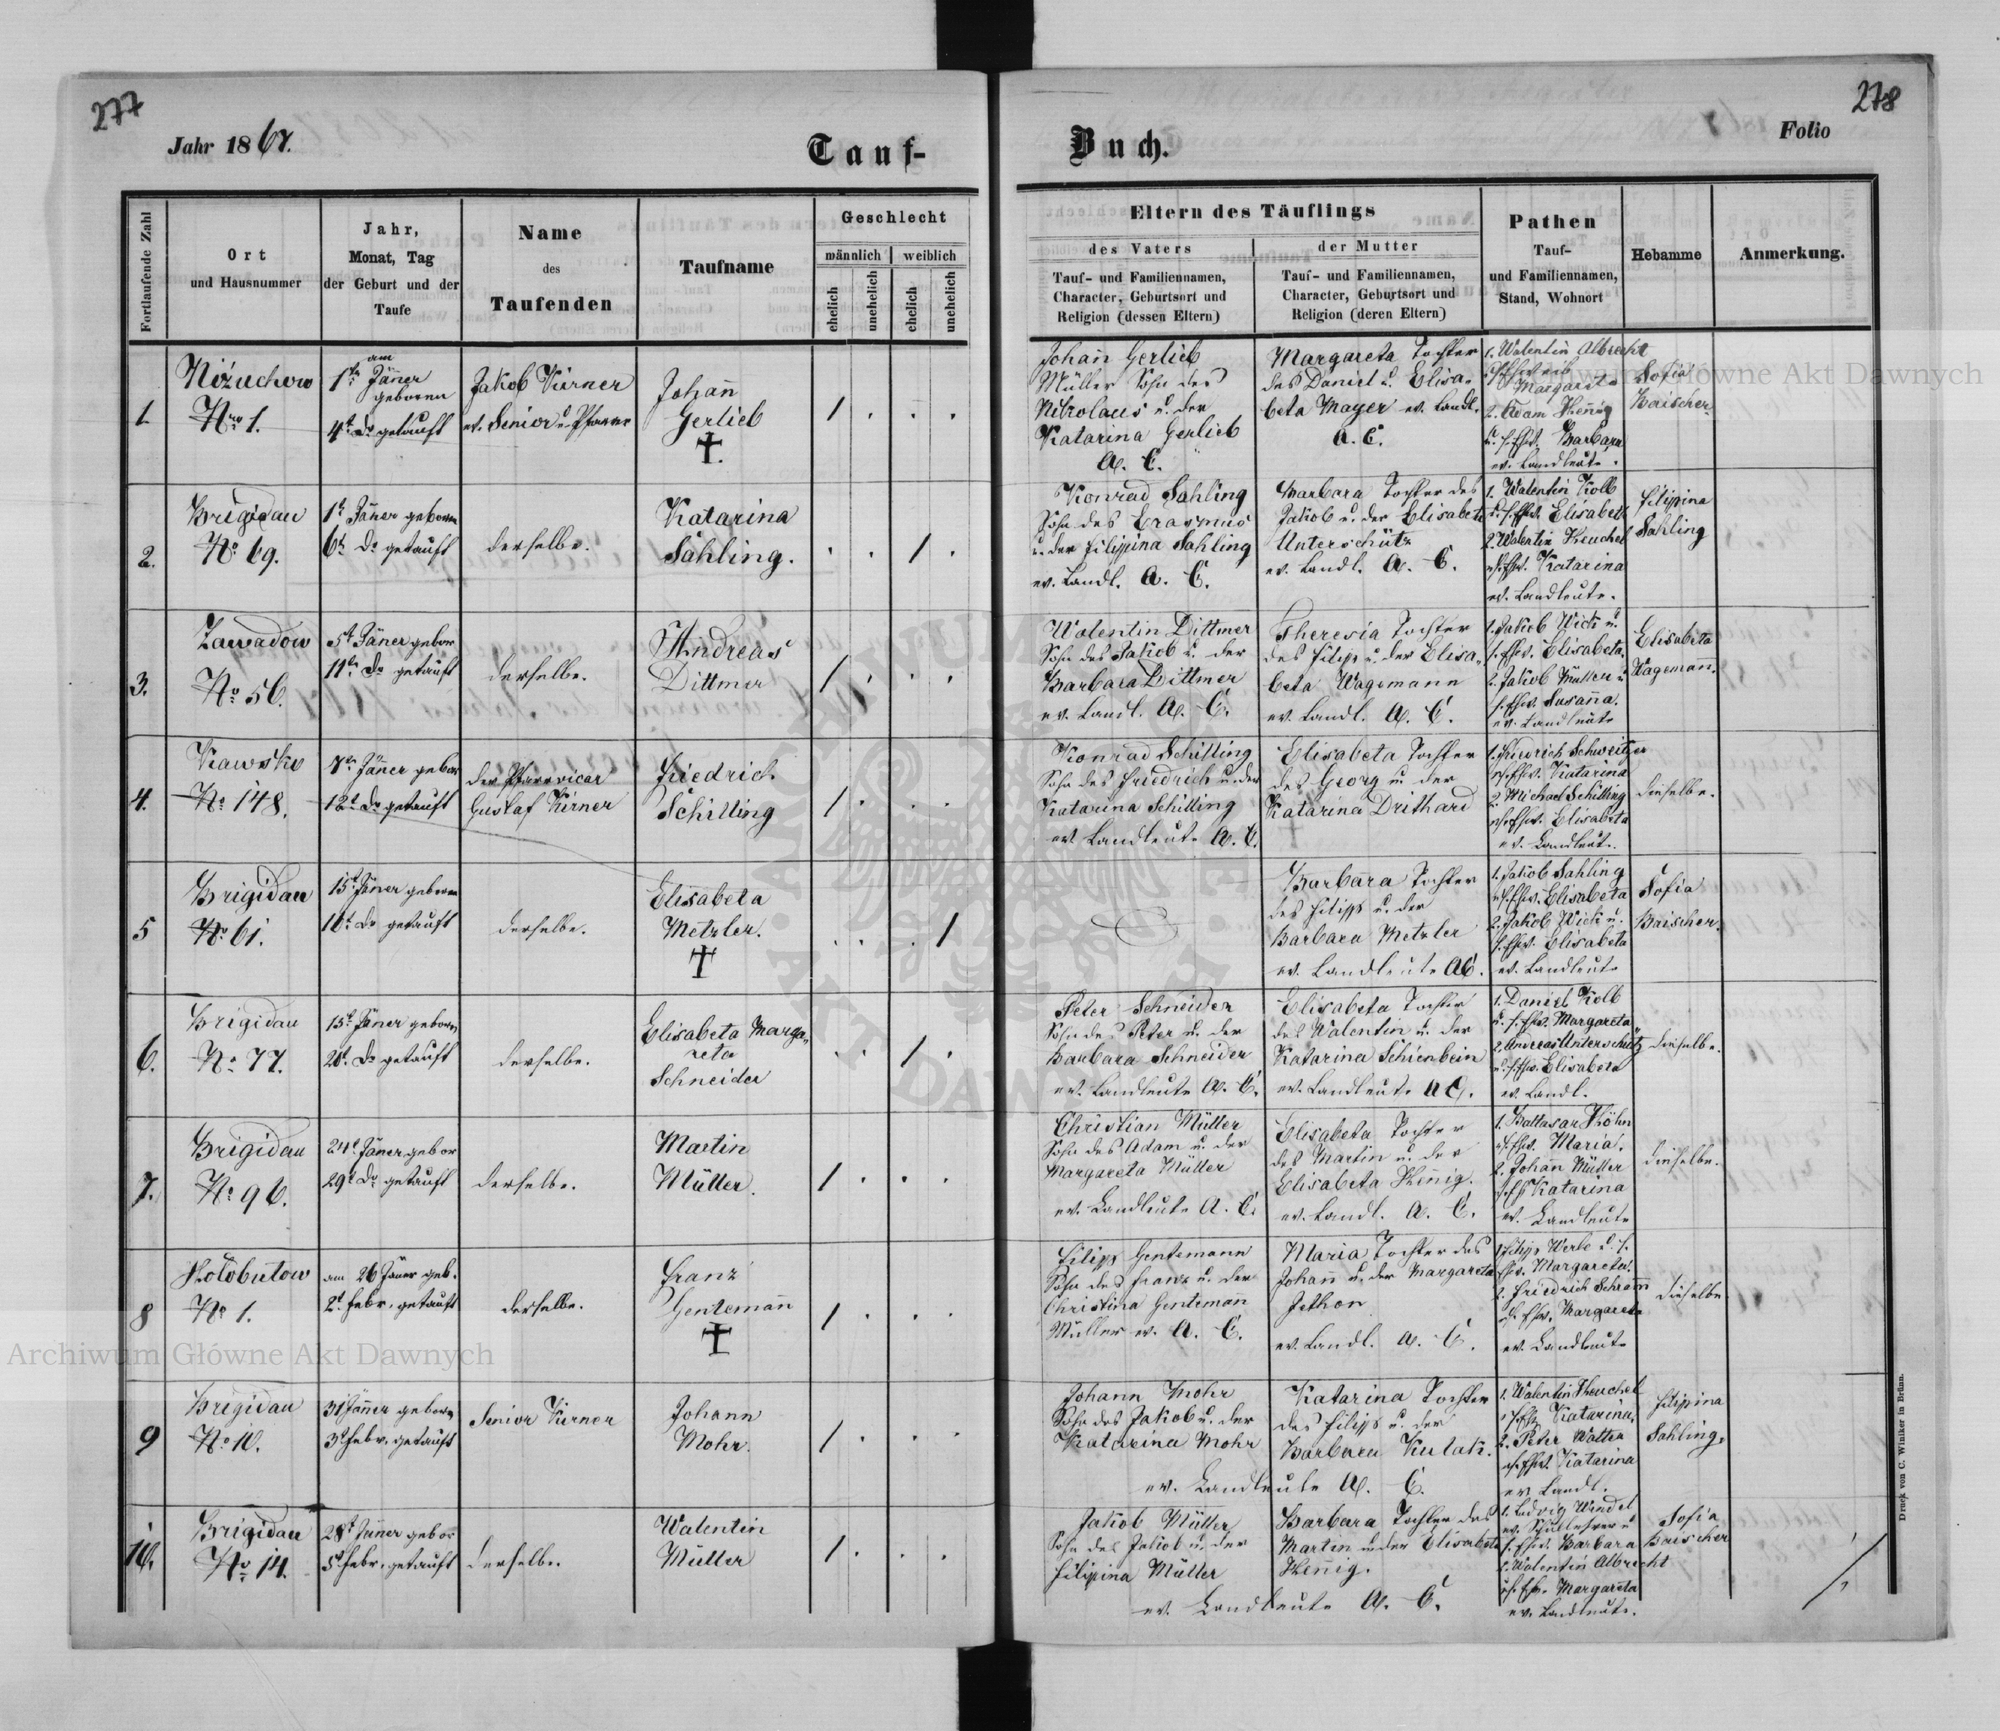 277
278
Jahr 1867.
Tauf-
Buch.
Folio
Fortlaufende Zahl
Ort
und Hausnummer
Jahr,
Monat, Tag
der Geburt und der
Taufe
Name
des
Taufenden
Taufname
Geschlecht
männlich
weiblich
ehelich
unehelich
ehelich
unehelich
Eltern des Täuflings
des Vaters
Tauf- und Familiennamen,
Character, Geburtsort und
Religion (dessen Eltern)
der Mutter
Tauf- und Familiennamen,
Character, Geburtsort und
Religion (deren Eltern)
Pathen
Tauf-
und Familiennamen,
Stand, Wohnort
Hebamme
Anmerkung.
1.
Niżuchow
Nro 1.
am
1ten Jäner
geboren
4t. Do getauft
Jakob Kürner
ev. Senior u. Pfarrer
Johañ
Gerlieb
†.
Johañ Gerlieb
Müller Sohn des
Nikolaus u. der
Katarina Gerlieb
A. C.
Margareta Tochter
des Daniel u. Elisa-
beta Mayer ev. Landl.
A. C.
1. Walentin Albrecht
Margareta
2. Adam Heñig
u. s. Ehw. Barbara
ev. Landleute.
Sofia
Baischer.
2.
Brigidau
No 69.
1t. Jäner geboren
6t. Do getauft
derselbe.
Katarina
Sahling.
Konrad Sahling
Sohn des Erasmus
u. der Filipina Sahling
ev. Landl. A. C.
Barbara Tochter des
Jakob u. der Elisabeta
Unterschütz
ev. Landl. A. C.
1. Walentin Kolb
u. s. Ehw. Elisabet
2. Walentin Heuchel
u. s. Ehw. Katarina
ev. Landleute.
Filipina
Sahling
3.
Zawadow
No 56.
5t. Jäner gebor
11ten Do getauft
derselbe.
Andreas
Dittmer
Walentin Dittmer
Sohn des Jakob u. der
Barbara Dittmer
ev. Landl. A. C.
Theresia Tochter
des Filipp u. der Elisa-
beta Wagemann
ev. Landl. A. C.
1. Jakob Wick u.
s. Ehw. Elisabeta.
2. Jakob Müller u
s. Ehw. Susaña.
ev. Landleute
Elisabeta
Wageman.
4.
Kawsko
No 148.
7ten Jäner gebor
12t. Do getauft
der Pfarrvicar
Gustaf Kürner
Friedrich
Schilling
Konrad Schilling
Sohn des Friedrich u. der
Katarina Schilling
ev. Landleute A. C.
Elisabeta Tochter
des Georg u. der
Katarina Drithard
1. Friedrich Schweitzer
u. s. Ehw. Katarina
2. Michael Schilling
u. s. Ehw. Elisabeta
ev. Landleut.
dieselbe.
5
Brigidau
No 61.
15t. Jäner geboren
16t. Do getauft
derselbe.
Elisabeta
Metzler.
†
Barbara Tochter
des Filipp u. der
Barbara Metzler
ev. Landleute AC.
1. Jakob Sahling
u. s. Ehw. Elisabeta
2. Jakob Wick u.
s. Ehw. Elisabeta
ev. Landleute
Sofia
Baischer.
6.
Brigidau
No 77.
15t. Jäner geboren
20t. Do getauft
derselbe.
Elisabeta Marga-
reta
Schneider
Peter Schneider
Sohn des Peter u. der
Barbara Schneider
ev. Landleute A. C.
Elisabeta Tochter
des Walentin u. der
Katarina Schienbein
ev. Landleute A C.
1. Daniel Kolb
u. s. Ehw. Margareta
2. Andreas Unterschütz
u. s. Ehw. Elisabeta
ev. Landl.
dieselbe.
7.
Brigidau
No 96.
24t. Jäner gebor
29t. Do getauft
derselbe.
Martin
Müller.
Christian Müller
Sohn des Adam u. der
Margareta Müller
ev. Landleute A. C.
Elisabeta Tochter
des Martin u. der
Elisabeta Heñig.
ev. Landl. A. C.
1. Baltasar Höhn
u. s. Ehw. Maria.
2. Johañ Müller
Katarina
ev. Landleute
dieselbe.
8
Hołobutow
No 1.
am 26 Jäner geb.
2t. Febr. getauft
derselbe.
Franz
Gentemañ
†
Filipp Gentemann
Sohn des Franz u. der
Christina Gentemañ
Müller ev. A. C.
Maria Tochter des
Johañ u. der Margareta
Jethon
ev. Landl. A. C.
1. Filipp Werle u. s.
Ehw. Margareta.
2. Friedrich Schramm
u. s. Ehw. Margareta
ev. Landleute
dieselbe
9
Brigidau
No 10.
31 Jäner geboren
3t. Febr. getauft
Senior Kürner
Johann
Mohr.
Johann Mohr
Sohn des Jakob u. der
Katarina Mohr
ev. Landleute A. C.
Katarina Tochter
des Filipp u. der
Barbara Kulak.
1. Walentin Heuchel
Katarina,
2. Peter Walter
u. s. Ehw. Katarina
ev. Landl.
Filipina
Sahling.
10.
Brigidau
No 14.
28t. Jäner gebor
5t. Febr. getauft
derselbe.
Walentin
Müller
Jakob Müller
Sohn des Jakob u. der
Filipina Müller
ev. Landleute A. C.
Barbara Tochter des
Martin u. der Elisabeta
Heñig.
1. Ludwig Wendel
ev. Schullehrer u
s. Ehw. Barbara
2. Walentin Albrecht
u. s. Ehw. Margareta
ev. Landleute.
Sofia
Baischer
Druck von C. Winiker in Brünn.
Archiwum Główne Akt Dawnych
Archiwum Główne Akt Dawnych
ARCHIWUM GŁÓWNE AKT DAWNYCH